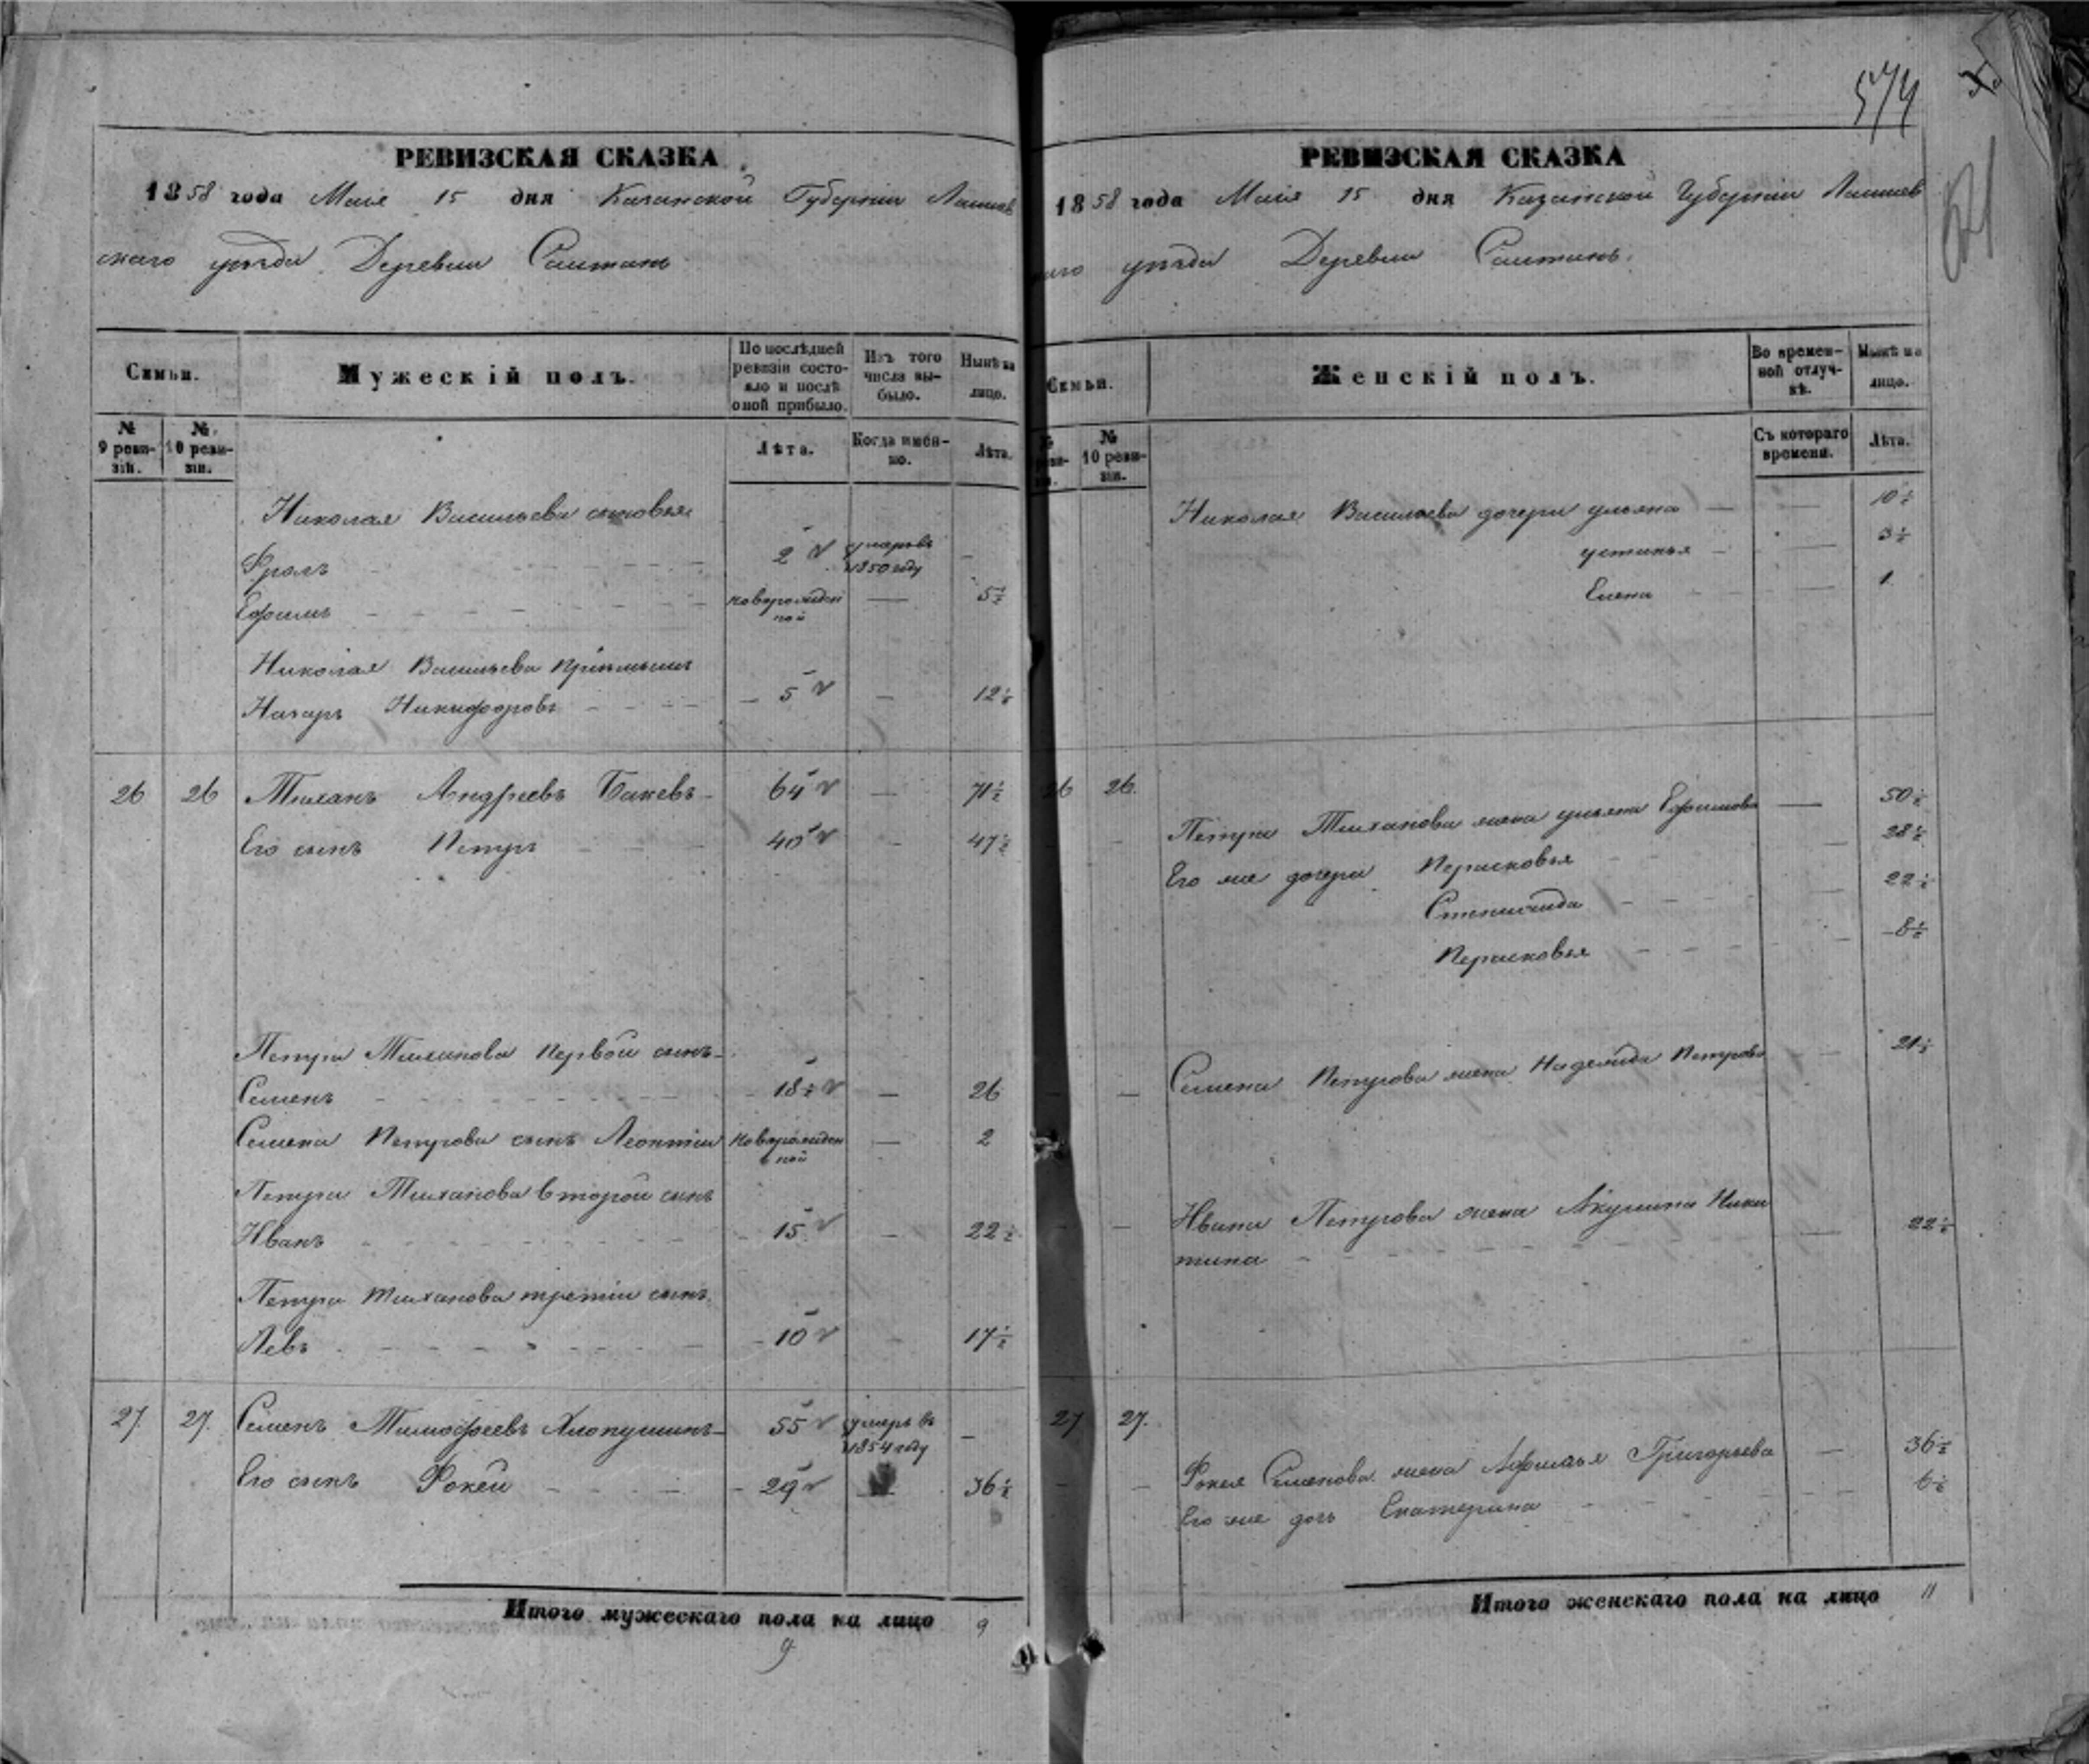 РЕВИЗСКАЯ СКАЗКА
1858 года Маія 15 дня Казанской Губерніи Лаишев
скаго уѣзда Деревни Саитанъ
Семьи.
Мужескій полъ.
По послѣдней ревизіи состояло и послѣ оной прибыло.
Изъ того числа выбыло.
Нынѣ на лицо.
№ 9 ревизіи.
№ 10 ревизіи.
Лѣта.
Когда именно.
Лѣта.
Николая Васильева сыновья
Фролъ 2 умеръ въ 1850 году —
Ефимъ новорожденной — 5½
Николая Васильева пріемышъ
Назаръ Никифоровъ 5 — 12½
26 26 Тиханъ Андреевъ Бакевъ 64 — 71½
Его сынъ Петръ 40 — 47½
Петра Тиханова первой сынъ
Семенъ 18½ — 26
Семена Петрова сынъ Леонтіи новорожденной — 2
Петра Тиханова второй сынъ
Иванъ 15 — 22½
Петра Тиханова третіи сынъ
Левъ 10 — 17½
27. 27. Семенъ Тимофеевъ Хлопушинъ 55 умеръ въ 1854 году —
Его сынъ Фокей 29 — 36½
Итого мужескаго пола на лицо 9
9
574
РЕВИЗСКАЯ СКАЗКА
1858 года Маія 15 дня Казанской Губерніи Лаишев
скаго уѣзда Деревни Саитанъ.
Семьи.
Женскій полъ.
Во временной отлучкѣ.
Нынѣ на лицо.
№ 10 ревизіи.
Съ котораго времени.
Лѣта.
Николая Васильева дочери ульяна — 10½
устинья — 3½
Елена — 1
26 26.
Петра Тиханова жена ульяна Ефимова — 50½
Его же дочери Перасковья 28½
Степанида 22½
Перасковья 8½
Семена Петрова жена Надежда Петрова 21½
Ивана Петрова жена Акулина Ники
тина 22½
27 27.
Фокея Семенова жена Афимья Григорьева — 36½
Его же дочь Екатерина 6½
Итого женскаго пола на лицо 11